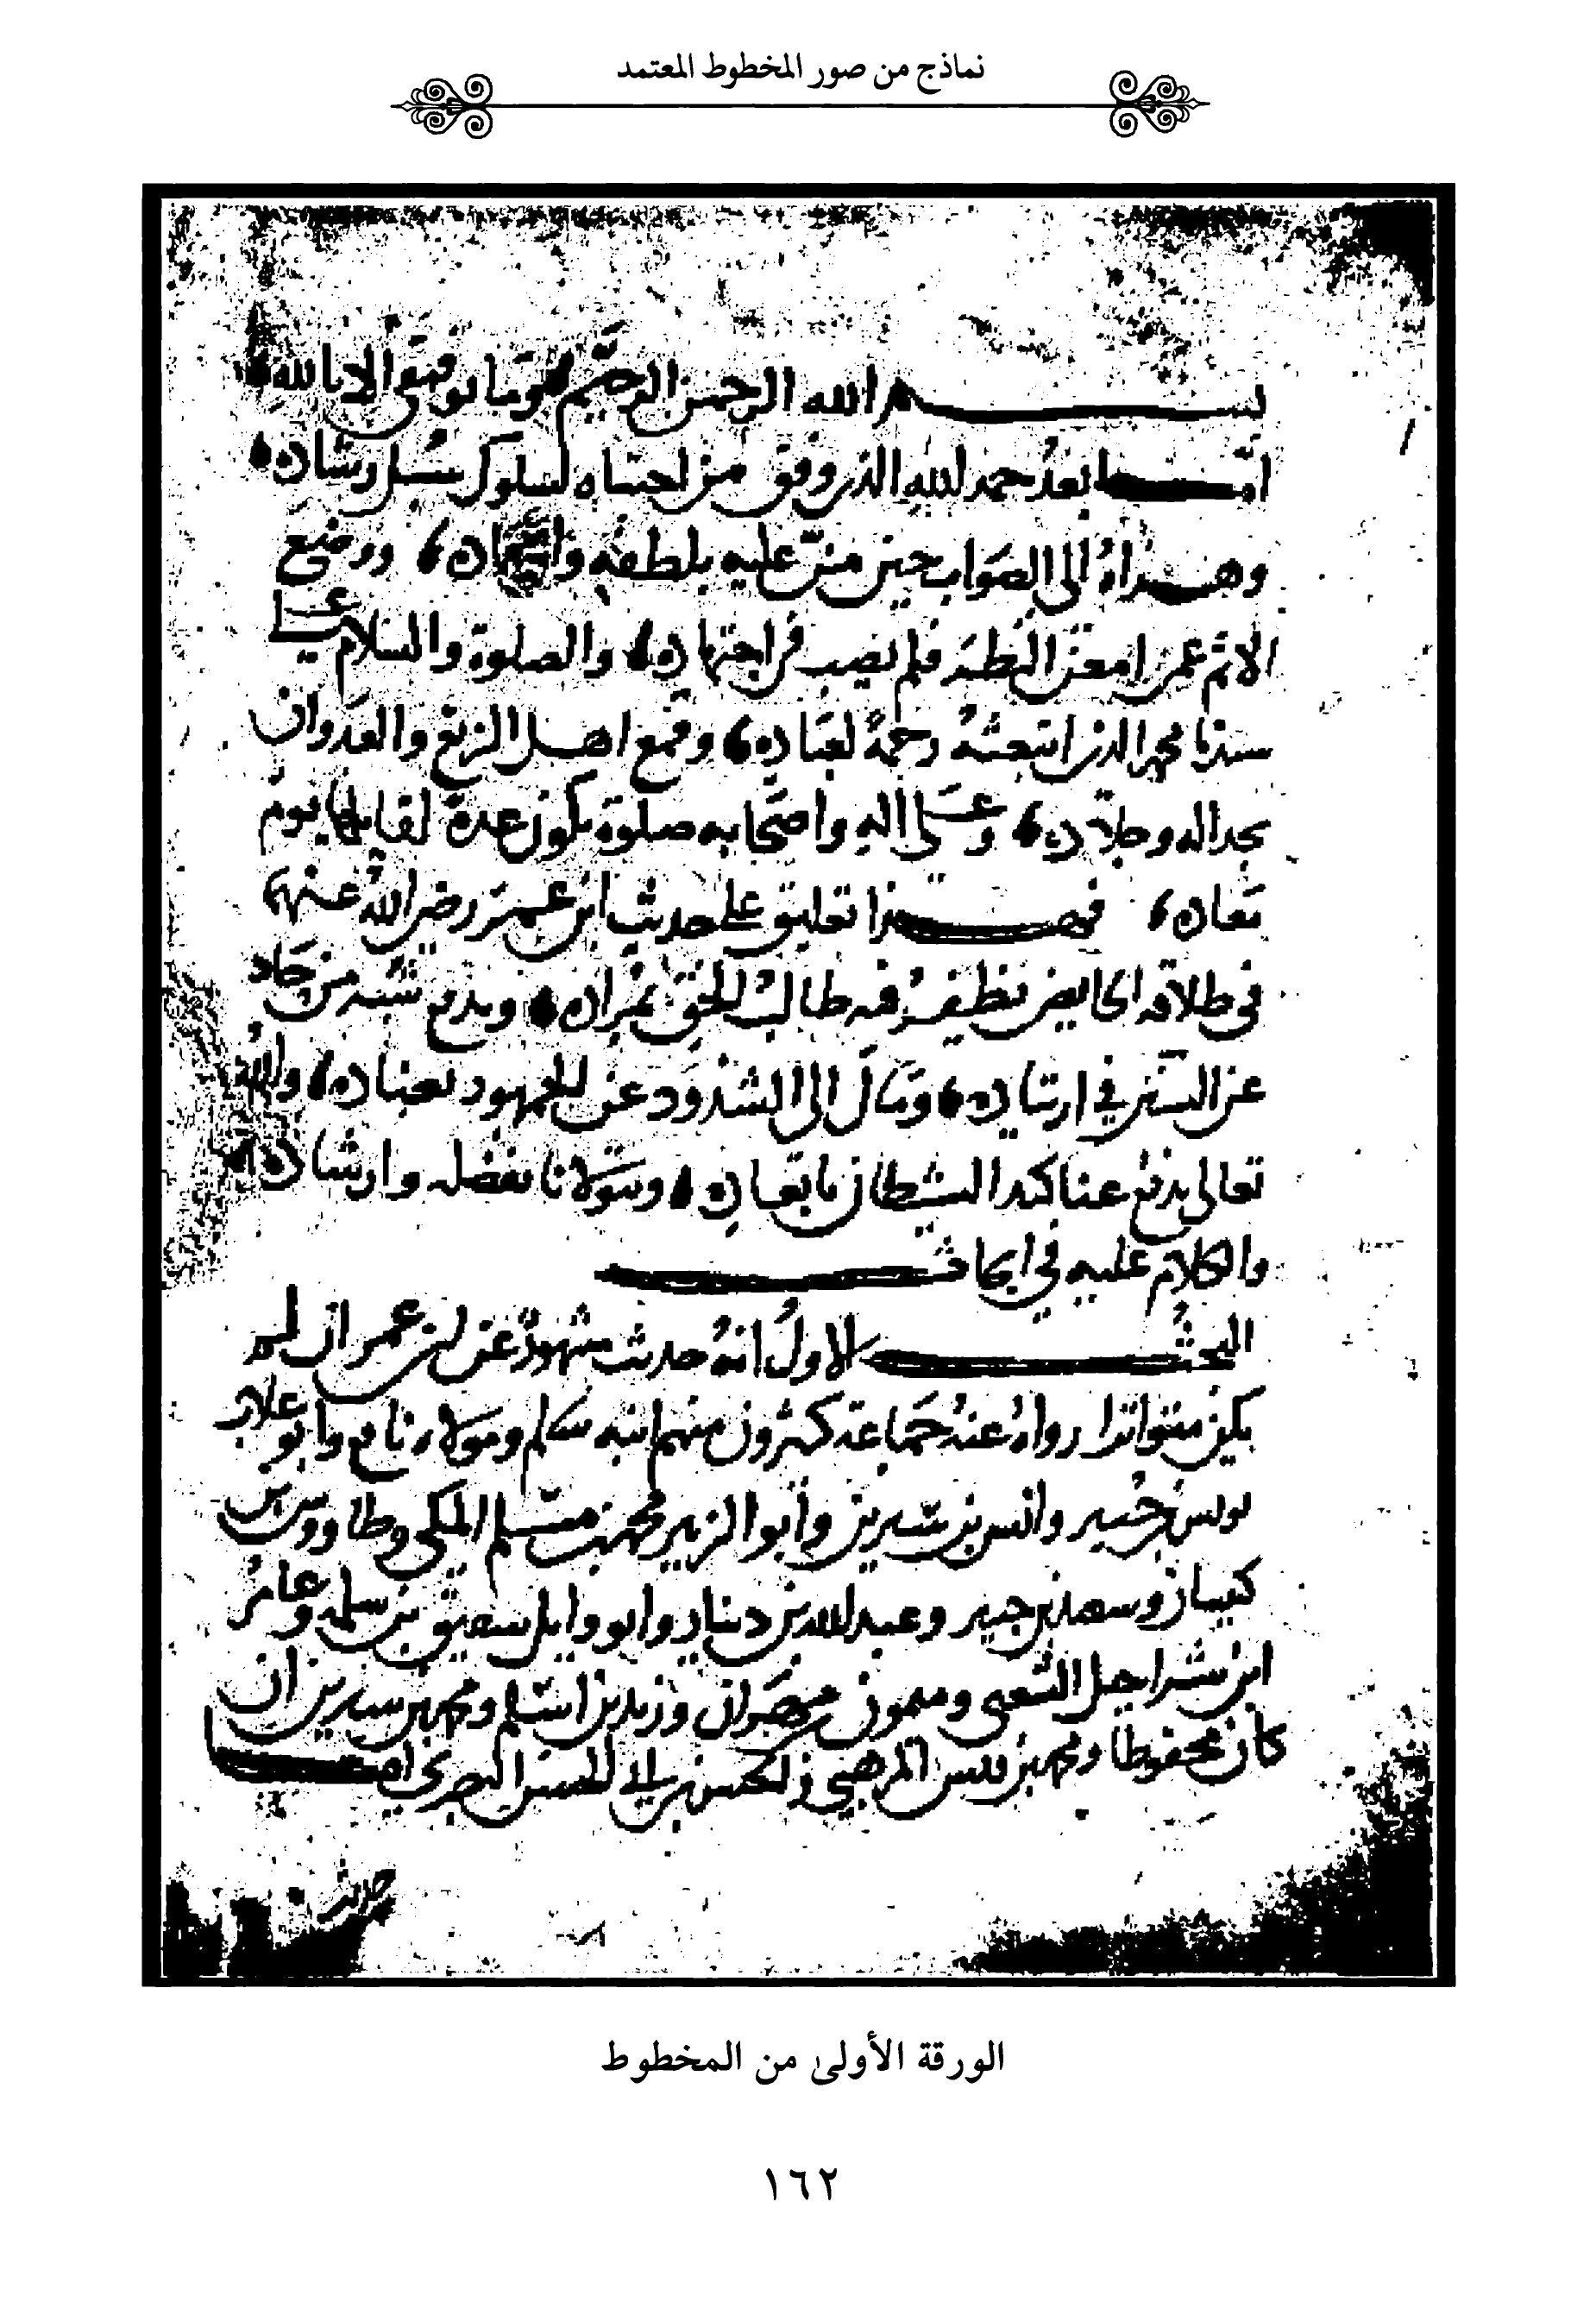 نماذج من صور المخطوط المعتمد
بسم الله الرحمن الرحيم وما توفيقي الا بالله
اما بعد حمد الله الذي وفق من اجتباه لسلوك سبيل رشاده
وهداه الى الصواب حين من عليه بلطفه ووضع
الاثم عمن امعن النظر فلم يصب في اجتهاده والصلوة والسلام على
سيدنا محمد الذي ابتعثه رحمة لعباده وقمع اهل الزيغ والعدوان
بجداله وجلاده وعلى اله واصحابه صلوة تكون عدة لقايلها يوم
معاده فهذا تعليق على حديث ابن عمر رضي الله عنهما
في طلاقه الحايض يظفر فيه طالب الحق بمراده ويدفع شبه من حاد
عن السنن في ارتياده ومال الى الشذوذ عن الجمهور لعناده والله
تعالى يدفع عنا كيد الشيطان بابعاده ويتولانا بفضله وارشاده
والكلام عليه في ابحاث
البحث الاول انه حديث مشهور عن ابن عمر ان لم
يكن متواترا رواه عنه جماعة كثيرون منهم ابنه سالم ومولاه نافع وابو غلاب
يونس بن جبير وانس بن سيرين وابو الزبير محمد بن مسلم المكي وطاووس بن
كيسان وسعيد بن جبير وعبد الله بن دينار وابو وايل شقيق بن سلمة وعامر
ابن شراحيل الشعبي وميمون بن مهران وزيد بن اسلم ومحمد بن سيرين ان
كان محفوظا ومحمد بن قيس المرهبي والحسن بن ابي الحسن البصري
حديث
الورقة الأولى من المخطوط
١٦٢